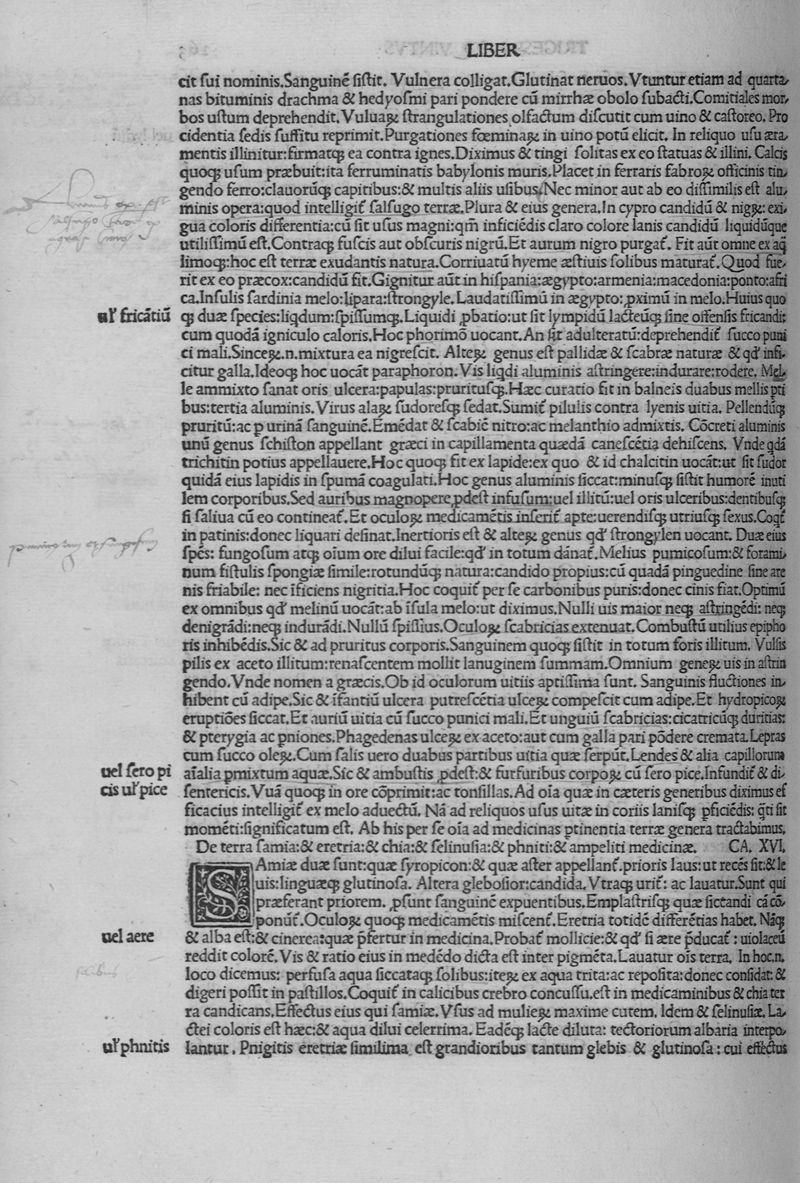 LIBER
cit sui nominis.Sanguinē sistit. Vulnera colligat.Glutinat neruos.Vtuntur etiam ad quarta-
nas bituminis drachma & hedyosmi pari pondere cū mirrhæ obolo subacti.Comitiales mor-
bos ustum deprehendit.Vuluaꝝ strangulationes olfactum discutit cum uino & castoreo. Pro
cidentia sedis suffitu reprimit.Purgationes fœminaꝝ in uino potū elicit. In reliquo usu æra-
mentis illinitur:firmatqꝫ ea contra ignes.Diximus & tingi solitas ex eo statuas & illini. Calcis
quoqꝫ usum præbuit:ita ferruminatis babylonis muris.Placet in ferraris fabroꝝ officinis tin-
gendo ferro:clauorūqꝫ capitibus:& multis aliis usibus.Nec minor aut ab eo dissimilis est alu-
minis opera:quod intelligit̃ salsugo terræ.Plura & eius genera.In cypro candidū & nigꝝ: exi-
gua coloris differentia:cū sit usus magni:qm̄ inficiēdis claro colore lanis candidū liquidūque
utilissimū est.Contraqꝫ fuscis aut obscuris nigrū.Et aurum nigro purgat̃. Fit aūt omne ex aq̃
limoqꝫ:hoc est terræ exudantis natura.Corriuatū hyeme æstiuis solibus maturat̃. Quod fue-
rit ex eo præcox:candidū fit.Gignitur aūt in hispania:ægypto:armenia:macedonia:ponto:afri
ca.Insulis sardinia melo:lipara:strongyle.Laudatissimū in ægypto:ꝓximū in melo.Huius quo
ul' fricātiū
qꝫ duæ species:liqdum:spissumqꝫ.Liquidi ꝓbatio:ut sit lympidū lacteūqꝫ sine offensis fricandi:
cum quodā igniculo caloris.Hoc phorimō uocant.An sit adulteratū:deprehendit̃ succo puni
ci mali.Sinceꝝ.n.mixtura ea nigrescit. Alteꝝ genus est pallidæ & scabræ naturæ & qd' infi-
citur galla.Ideoqꝫ hoc uocāt paraphoron.Vis liqdi aluminis astringere:indurare:rodere. Mel-
le ammixto sanat oris ulcera:papulas:pruritusqꝫ.Hæc curatio fit in balneis duabus mellis pti
bus:tertia aluminis.Virus alaꝝ sudoresqꝫ sedat.Sumit̃ pilulis contra lyenis uitia. Pellendūqꝫ
pruritū:ac ꝑ urinā sanguinē.Emēdat & scabiē nitro:ac melanthio admixtis. Cōcreti aluminis
unū genus schiston appellant græci in capillamenta quædā canescētia dehiscens. Vnde qdā
trichitin potius appellauere.Hoc quoqꝫ fit ex lapide:ex quo & id chalcitin uocāt:ut sit sudor
quidā eius lapidis in spumā coagulati.Hoc genus aluminis siccat:minusqꝫ sistit humorē inuti
lem corporibus.Sed auribus magnopere ꝓdest infusum:uel illitū:uel oris ulceribus:dentibusqꝫ
si saliua cū eo contineat̃.Et oculoꝝ medicamētis inserit̃ apte:uerendisqꝫ utriusqꝫ sexus.Coqt̃
in patinis:donec liquari desinat.Inertioris est & alteꝝ genus qd' strongylen uocant. Duæ eius
spēs: fungosum atqꝫ oīum ore dilui facile:qd' in totum dānat̃.Melius pumicosum:& forami-
num fistulis spongiæ simile:rotundūqꝫ natura:candido propius:cū quadā pinguedine sine are
nis friabile: nec īficiens nigritia.Hoc coquit̃ per se carbonibus puris:donec cinis fiat.Optimū
ex omnibus qd' melinū uocāt:ab īsula melo:ut diximus.Nulli uis maior neqꝫ astringēdi: neqꝫ
denigrādi:neqꝫ indurādi.Nullū spissius.Oculoꝝ scabricias extenuat.Combustū utilius epipho
ris inhibēdis.Sic & ad pruritus corporis.Sanguinem quoqꝫ sistit in totum foris illitum. Vulsis
pilis ex aceto illitum:renascentem mollit lanuginem summam.Omnium geneꝝ uis in astrin
gendo.Vnde nomen a græcis.Ob id oculorum uitiis aptissima sunt. Sanguinis fluctiones in-
hibent cū adipe.Sic & īfantiū ulcera putrescētia ulceꝝ compescit cum adipe.Et hydropicoꝝ
eruptiões siccat.Et auriū uitia cū succo punici mali.Et unguiū scabricias:cicatricūqꝫ duritias:
& pterygia ac pniones.Phagedenas ulceꝝ ex aceto:aut cum galla pari pōdere cremata.Lepras
cum succo oleꝝ.Cum salis uero duabus partibus uitia quæ serpūt.Lendes & alia capillorum
uel sero pi
aīalia pmixtum aquæ.Sic & ambustis ꝓdest:& furfuribus corpoꝝ cū sero pice.Infundit̃ & di-
cis ul' pice
sentericis.Vuā quoqꝫ in ore cōprimit:ac tonsillas.Ad oīa quæ in cæteris generibus diximus ef
ficacius intelligit̃ ex melo aduectū. Nā ad reliquos usus uitæ in coriis lanisqꝫ ꝑficiēdis: q̄ti sit
momēti:significatum est. Ab his per se oīa ad medicinas ptinentia terræ genera tractabimus.
De terra samia:& eretria:& chia:& selinusia:& phniti:& ampeliti medicinæ. CA. XVI.
SAmiæ duæ sunt:quæ syropicon:& quæ aster appellant̃.prioris laus:ut recēs sit:& le
uis:linguæqꝫ glutinosa. Altera glebosior:candida.Vtraqꝫ urit̃: ac lauatur.Sunt qui
præferant priorem. ꝓsunt sanguinē expuentibus.Emplastrisqꝫ quæ siccandi cā cō-
ponūt̃.Oculoꝝ quoqꝫ medicamētis miscent̃.Eretria totidē differētias habet. Nāqꝫ
uel aere
& alba est:& cinerea:quæ p̄fertur in medicina.Probat̃ mollicie:& qd' si ære p̄ducat̃ : uiolaceū
reddit colorē.Vis & ratio eius in medēdo dicta est inter pigmēta.Lauatur oīs terra. In hoc.n.
loco dicemus: perfusa aqua siccataqꝫ solibus:iteꝝ ex aqua trita:ac reposita:donec consídat: &
digeri possit in pastillos.Coquit̃ in calicibus crebro concussu.est in medicaminibus & chia ter
ra candicans.Effectus eius qui samiæ.Vsus ad mulieꝝ maxime cutem. Idem & selinusiæ. La-
ctei coloris est hæc:& aqua dilui celerrima. Eadēqꝫ lacte diluta: tectoriorum albaria interpo-
ul' phnitis
lantur. Pnigitis eretriæ similima est grandioribus tantum glebis & glutinosa : cui effectus